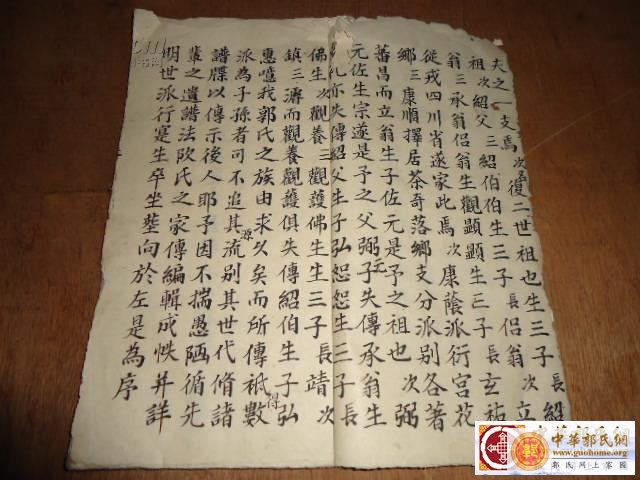 夫之一支焉次孟復二世祖也生三子長紹
祖次紹父三紹伯伯生三子長侶翁次立
翁三承翁侶翁生觀顯顯生三子長玄祐
從戎四川省遂家此焉次康蔭派行宮花
鄉三康順擇居茶奇落鄉支分派别各著
蕃昌而立翁生子佐元是予之祖也次弼
元佐生宗遂是予之父弼元子失傳承翁生
札亦失傳紹父生子弘恕恕生三子長
佛生次觀養三觀護佛生生三子長靖次
鎮三濬而觀養觀護俱失傳紹伯生子弘
惠噫我郭氏之族由求以矣而所傳祇得數
派為子孫者可不追其源流别其世代脩諸
譜牒以傳示後人耶予因不揣愚陋循先
輩之遺譜法欧氏之家傳編輯成帙并詳
明世派行寔生卒坐塟向於左是為序
中華郭氏網
www.guohome.org
郭氏网上家园